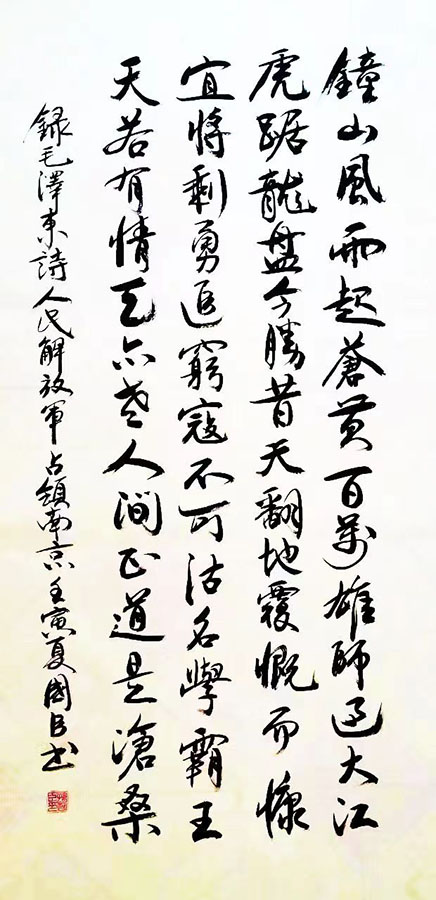 鐘山風雨起蒼黄百萬雄師過大江
虎踞龍盤今勝昔天翻地覆慨而慷
宜將剩勇追窮寇不可沽名學霸王
天若有情天亦老人間正道是滄桑
録毛澤東詩人民解放軍占領南京壬寅夏國書